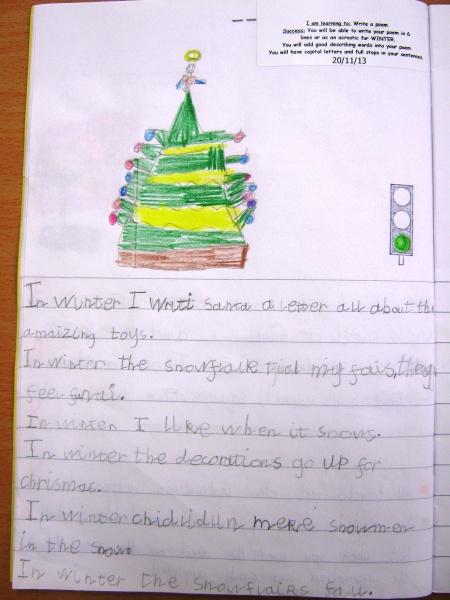 I am learning to: Write a poem
Success: You will be able to write your poem in 6
lines or as an acrostic for WINTER.
You will add good describing words into your poem.
You will have capital letters and full stops in your sentences.
20/11/13
In winter I santa a letter all about the
amaizing toys.
In winter the snowflaik my fais, they
feel
In winter I like when it snows.
In winter the decorations go up for
chrismas.
In winter snowmen
in the snow
In winter the fall.